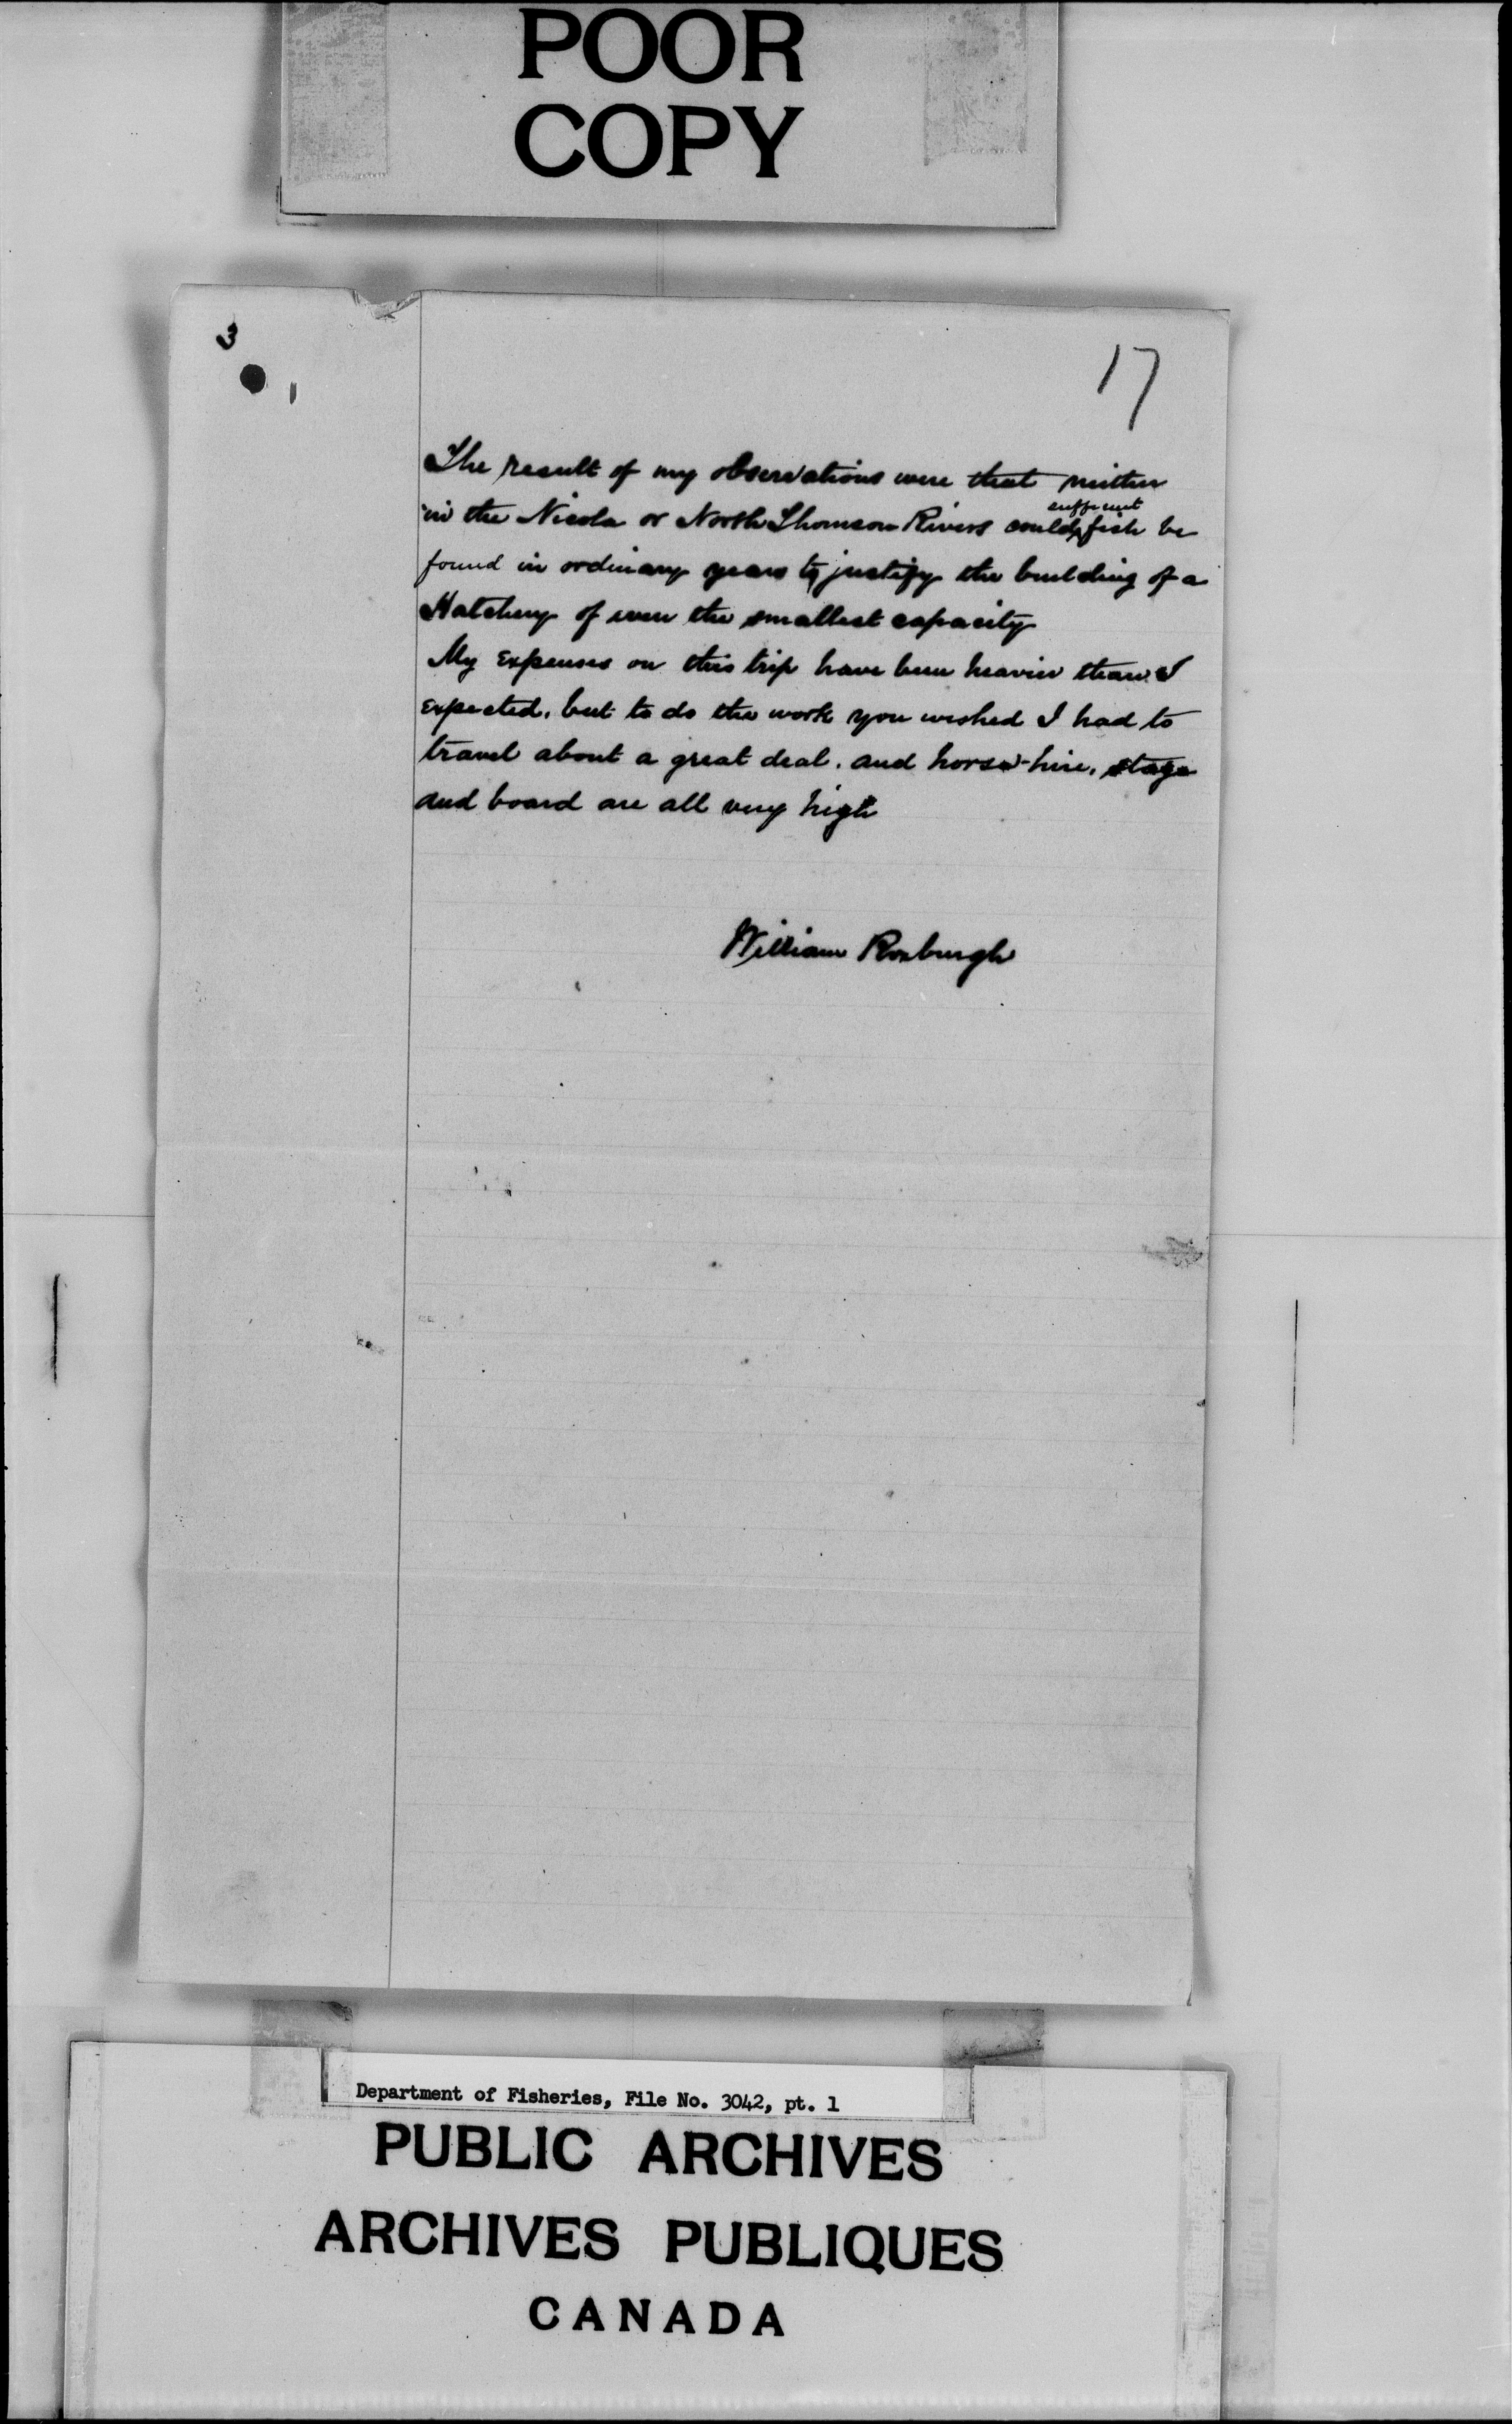 POOR
COPY
3
17
The result of my observations were that neither
in the Nicola or North Thomson Rivers could sufficient fish be
found in ordinary years to justify the building of a
Hatchery of even the smallest capacity
My Expenses on this trip have been heavier than I
expected, but to do the work you wished I had to
travel about a great deal. and horse-hire, stage
and board are all very high
William Roxburgh
Department of Fisheries, File No. 3042, pt. 1
PUBLIC ARCHIVES
ARCHIVES PUBLIQUES
CANADA